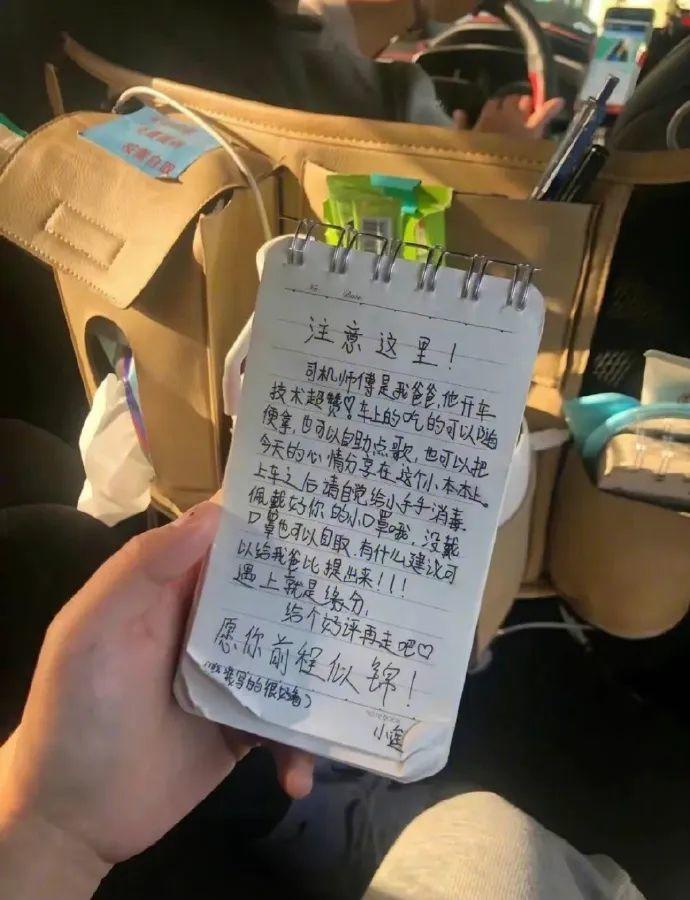 自取
No
Date
注意这里!
司机师傅是我爸爸,他开车
技术超赞♡车上的吃的可以随
便拿,也可以自助点歌,也可以把
今天的心情分享在这个小本本上。
上车之后请自觉给小手手消毒
佩戴好你的小口罩哦,没戴
口罩也可以自取.有什么建议可
以给我爸比提出来!!!
遇上就是缘分,
给个好评再走吧♡
愿你前程似锦!
我写的很好看)
NOTEBOOK
小莲